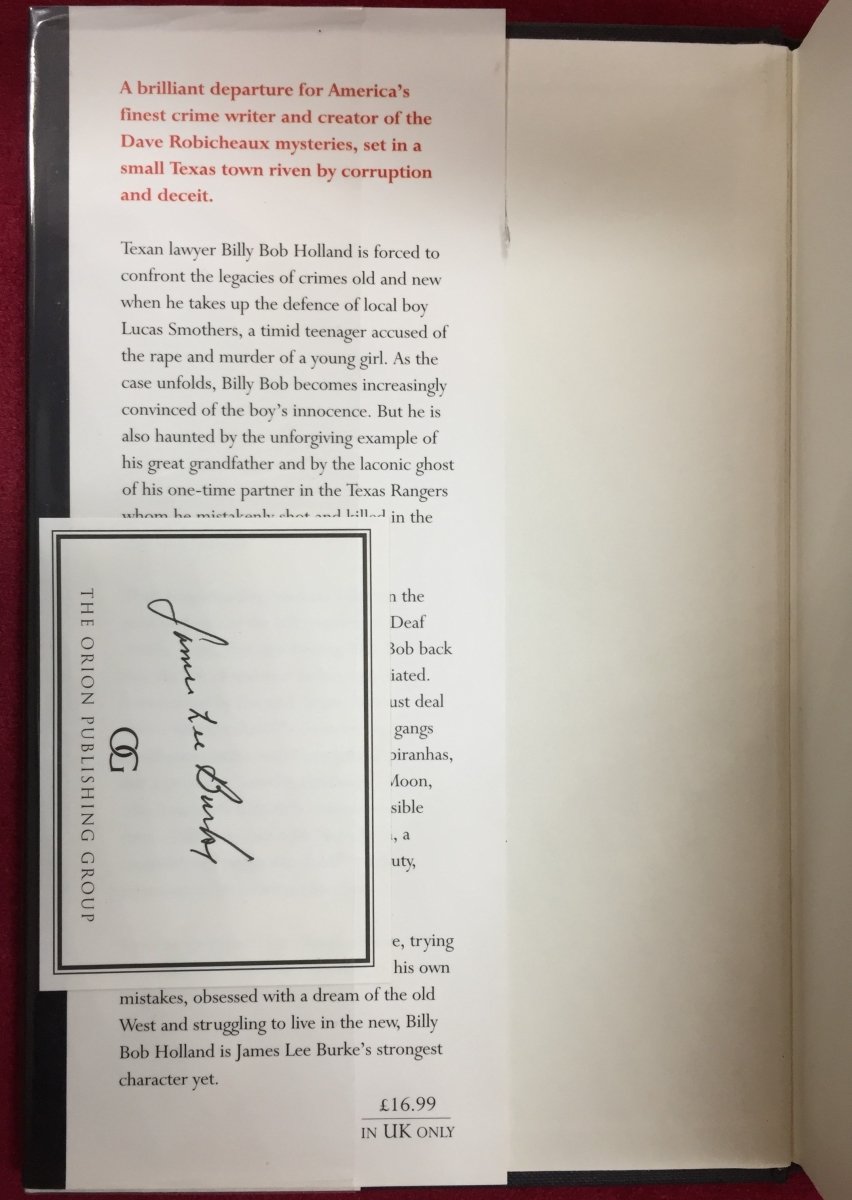 A brilliant departure for America's
finest crime writer and creator of the
Dave Robicheaux mysteries, set in a
small Texas town riven by corruption
and deceit.
Texan lawyer Billy Bob Holland is forced to
confront the legacies of crimes old and new
when he takes up the defence of local boy
Lucas Smothers, a timid teenager accused of
the rape and murder of a young girl. As the
case unfolds, Billy Bob becomes increasingly
convinced of the boy's innocence. But he is
also haunted by the unforgiving example of
his great grandfather and by the laconic ghost
of his one-time partner in the Texas Rangers
whom he mistakenly shot and killed in the
the
Deaf
Bob back
deal
gangs
piranhas,
Moon,
a
trying
his own
mistakes, obsessed with a dream of the old
West and struggling to live in the new, Billy
Bob Holland is James Lee Burke's strongest
character yet.
£16.99
IN UK ONLY
James Lee Burke
OG
THE ORION PUBLISHING GROUP